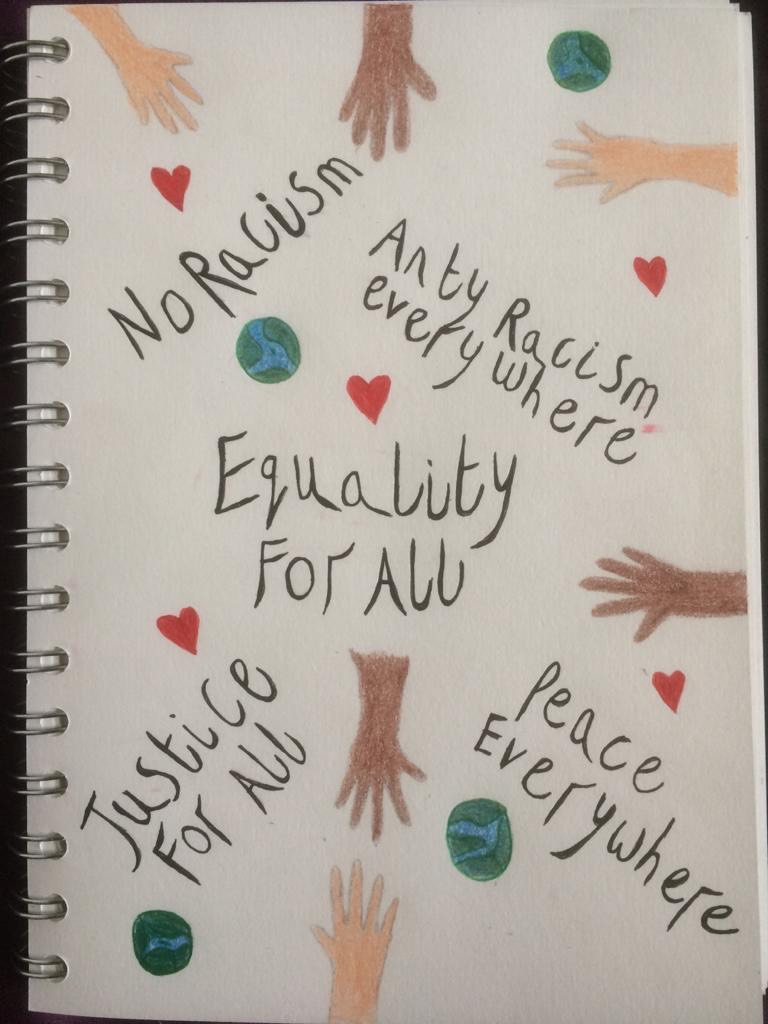 No Racism
Anty Racism
everywhere
Equality
For All
Justice
For All
Peace
Everywhere